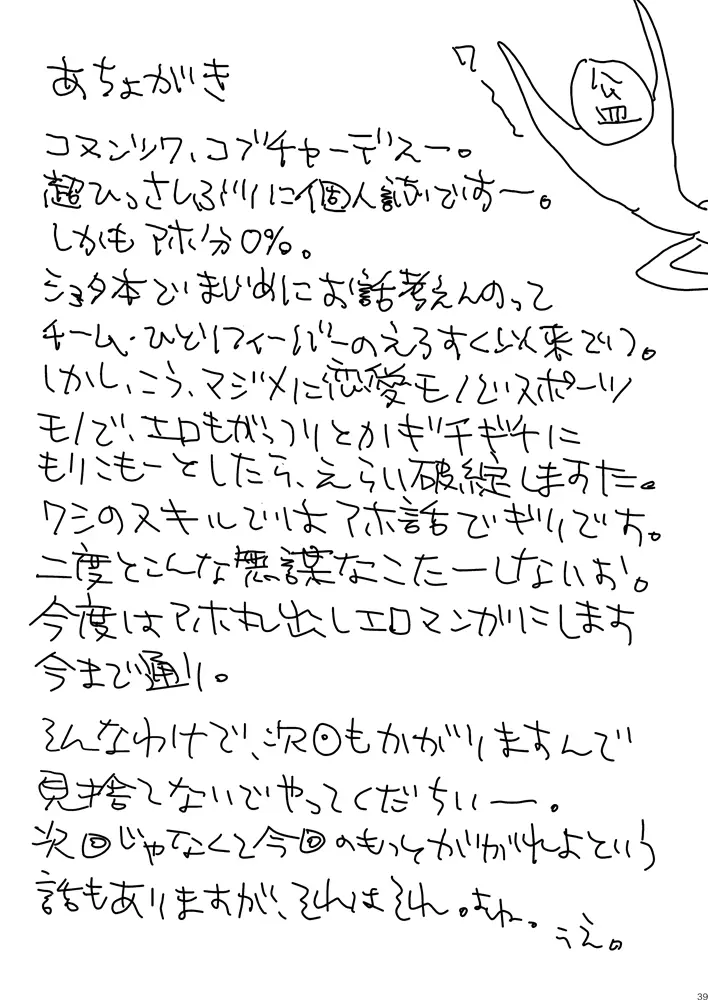 あちょがき
ワ
コヌンツワ、コブチャーデえー。
超ひっさしぶりに個人誌でいすー。
しかもアホ分0%。
ショタ本でまじめにお話考えんのって
チーム・ひとりフィーバーのえろすく以来でつ。
しかし、こう、マジメに恋愛モノでスポーツ
モノで、エロもがっつりとかギチギチに
もりこもーとしたら、えらい破綻しますた。
ワシのスキルではアホ話でぎりです。
二度とこんな無謀なこたーしないお。
今度はアホ丸出しエロマンガにします
今まで通り。
そんなわけで、次回もががりますんで
見捨てないでやってくだちいー。
次回じゃなくて今回のもっとががれよという
話もありますが、それはそれ。
39